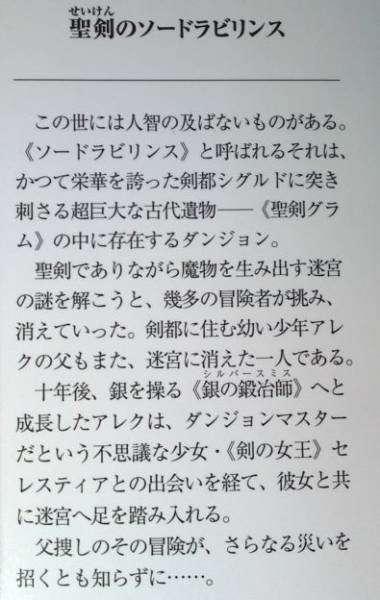 せいけん
聖剣のソードラビリンス
この世には人智の及ばないものがある。
《ソードラビリンス》と呼ばれるそれは、
かつて栄華を誇った剣都シグルドに突き
刺さる超巨大な古代遺物――《聖剣グラ
ム》の中に存在するダンジョン。
聖剣でありながら魔物を生み出す迷宮
の謎を解こうと、幾多の冒険者が挑み、
消えていった。剣都に住む幼い少年アレ
クの父もまた、迷宮に消えた一人である。
シルバースミス
十年後、銀を操る《銀の鍛冶師》へと
成長したアレクは、ダンジョンマスター
だという不思議な少女・《剣の女王》セ
レスティアとの出会いを経て、彼女と共
に迷宮へ足を踏み入れる。
父捜しのその冒険が、さらなる災いを
招くとも知らずに……。